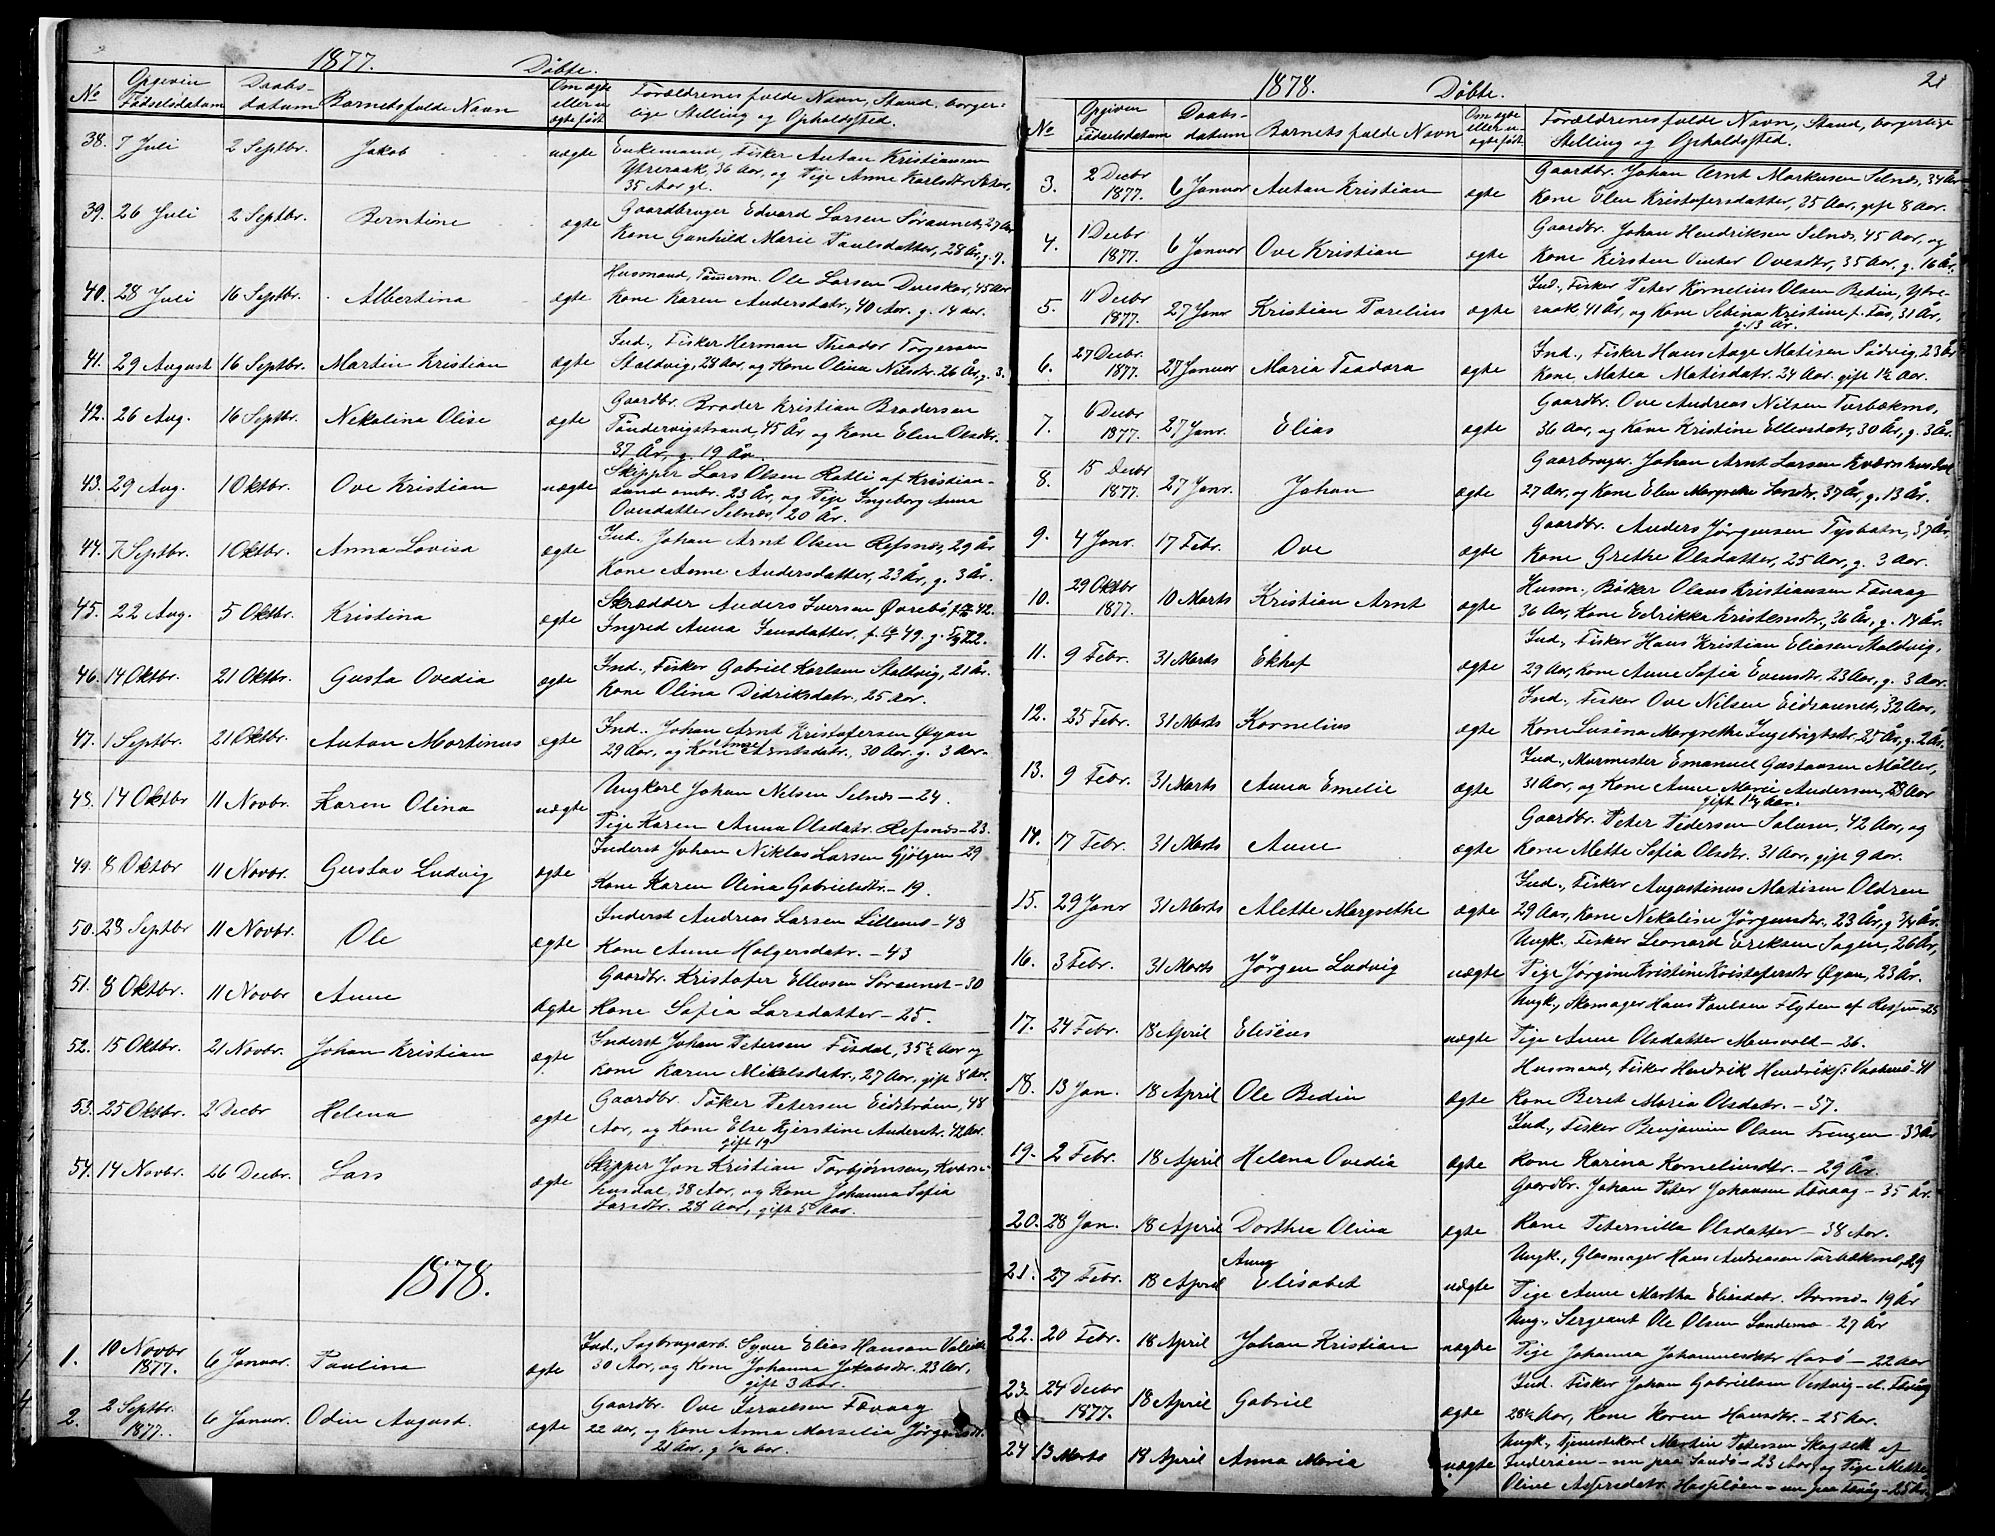 1877. Døbte.
No Opgiven Fødselsdatum Daabsdatum Barnets fulde Navn Om ægte eller uægte født Forældrenes fulde Navn, Stand, borgerlige Stilling og Opholdssted.
38. 7 Juli 2 Septbr. Jakob uægte Enkemand, Fisker Anton Kristiansen
Ytreraak, 36 Aar, og Pige Anne Karlsdtr
35 Aar gl.
39. 26 Juli 2 Septbr. Berntine ægte Gaardbruger Edvard Larsen Søraunet, 27 Aar
Kone Gunhild Marie Paulsdatter, 28 År, g. 7.
40. 28 Juli 16 Septbr. Albertina ægte Husmand, Tømmerm. Ole Larsen Dueskar, 45 Aar
Kone Karen Andersdatr., 40 Aar. g. 14 aar.
41. 29 August 16 Septbr. Martin Kristian ægte Ind., Fisker Herman Theodor Torgersen
Staldvig, 28 Aar, og Kone Olina Nilsdtr. 26 År, g. 3.
42. 26 Aug. 16 Septbr. Nekolina Olise ægte Gaardbr. Broder Kristian Brodersen
Tøndervigstrand, 45 År og Kone Elen Olsdtr.
37 År, g. 19 År.
43. 29 Aug. 1 Oktbr. Ove Kristian uægte Skipper Lars Olsen Ratli af Kristian-
sund omtr. 23 År, og Pige Ingeborg Anna
Ovesdatter Selnæs, 20 År.
44. 7 Septbr. 1 Oktbr. Anna Lovisa ægte Ind. Johan Arnt Olsen Refsnæs, 29 År
Kone Anne Andersdatter, 23 År, g. 3 År.
45. 22 Aug. 5 Oktbr. Kristina ægte Skrædder Anders Iversen Øvrebø, 42.
Ingred Anna Jensdatter, f. 49. g. 72.
46. 14 Oktbr. 21 Oktbr. Gusta Ovedia ægte Ind., Fisker Gabriel Karlsen Staldvig, 21 År.
Kone Olina Didriksdatr., 25 aar.
47. 1 Septbr. 21 Oktbr. Anton Martinus ægte Ind., Johan Arnt Kristofersen Øyan
29 Aar, og Kone Anne Berntsdatr., 30 Aar. g. 3 Aar.
48. 14 Oktbr 11 Novbr. Karen Olina uægte Ungkarl Johan Nilsen Selnæs – 24.
Pige Karen Anna Olsdatr. Refsnæs – 23.
49. 8 Oktbr 11 Novbr. Gustav Ludvig ægte Inderst Johan Niklas Larsen Gjølgen – 29
Kone Karen Olina Gabrielsdtr. – 19.
50. 28 Septbr 11 Novbr. Ole ægte Inderst Andreas Larsen Lillenes – 48
Kone Anne Holgersdatr. – 43
51. 8 Oktbr. 11 Novbr Anne Ægte Gaardbr. Kristofer Ellevsen Søraunet – 30
Kone Sofia Larsdatter – 25.
52. 15 Oktbr. 21 Novbr. Johan Kristian ægte Inderst Johan Petersen Fisdal, 35½ Aar og
Kone Karen Mikalsdatr., 27 Aar, gift 8 Aar.
53. 25 Oktbr. 2 Decbr Helena ægte Gaardbr. Tøker Petersen Eidstrøm, 48
Aar, og Kone Else Kjerstine Andersdtr. 42 Aar.
gift 19
54. 14 Novbr. 26 Decbr. Lars ægte Skipper Jon Kristian Torbjørnsen, Kværn-
husdal, 38 Aar, og Kone Johanna Sofia
Larsdtr. 28 Aar, gift 5 Aar.
1878.
1. 10 Novbr 1877. 6 Januar. Paulina ægte Ind., Sagbrugsarb. Syver Elias Hansen
30 Aar, og Kone Johanna Jakobsdtr. 23 Aar,
gift 3 Aar.
2. 2 Septbr. 1877. 6 Januar. Odin August. ægte Gaardbr. Ove Israelsen Fævaag
22 aar, og Kone Anna Marselia Jørgensdtr.
21 Aar, g ½ aar.
1878. Døbte. 21
No Opgiven Fødselsdatum Daabsdatum Barnets fulde Navn Om ægte eller uægte født Forældrenes fulde Navn, Stand, borgerlige Stilling og Opholdssted.
3. 2 Decbr 1877. 6 Januar Anton Kristian ægte Gaardbr. Johan Arnt Markusen Selnæs, 34 Aar
Kone Elen Kristofersdatter, 35 Aar, gift 8 Aar.
4. 1 Decbr 1877. 6 Januar Ove Kristian ægte Gaardbr. Johan Hendriksen Selnæs, 45 Aar, og
Kone Kirsten Vinter Ovesdtr, 35 Aar, g. 16 År.
5. 11 Decbr 1877. 27 Janr Kristian Torelius ægte Ind., Fisker Peter Kornelius Olsen Bedin, Ytre-
raak, 41 År, og Kone Sebina Kristine f. Fos, 31 År,
g. 13 År.
6. 27 Decbr. 1877. 27 Januar Maria Teodora ægte Ind., Fisker Hans Aage Matisen Sødvig, 23 År
Kone, Matea Matisdatr. 24 Aar. gift 1½ Aar.
7. 6 Decbr 1877. 27 Janr. Elias ægte Gaardbr. Ove Andreas Nilsen Torbækmo,
36 Aar, og Kone Kristine Ellevsdatr, 30 År, g. 3 År.
8. 15 Decbr 1877. 27 Janr. Johan ægte Gaarbruger. Johan Arnt Larsen Kværnhusdal
27 Aar, og Kone Elen Margrethe Larsdtr. 37 År, g. 13 År.
9. 4 Janr. 17 Febr. Ove ægte Gaardbr. Anders Jørgensen Tysbotn, 37 År.
Kone Grethe Olsdatter, 25 Aar, g. 3 Aar.
10. 29 Oktbr 1877. 10 Marts Kristian Arnt ægte Husm. Bøtker Olaus Kristiansen Fævaag
36 Aar, Kone Edrikka Kristensdtr., 36 År, g. 14 År.
11. 9 Febr. 31 Marts Ekhof ægte Ind., Fisker Hans Kristian Eliasen Staldvig,
29 Aar, Kone Anne Sofia Evensdtr. 23 Aar, g. 3 Aar.
12. 25 Febr. 31 Marts Kornelius ægte Ind., Fisker Ove Nilsen Eidsaunet, 32 Aar,
Kone Lusena Margrethe Ingebrigtsdtr. 27 År, g. 2 År.
13. 9 Febr. 31 Marts Anna Emelie ægte Ind., Murmester Emanuel Gustavsen Møller,
31 Aar, og Kone Anne Marie Andersen, 28 Aar
gift 1¼ Aar.
14. 17 Febr. 31 Marts Anne ægte Gaardbr. Peter Pedersen Solusen, 42 Aar, og
Kone Mette Sofia Olsdtr. 31 Aar, gift 9 Aar.
15. 29 Janr 31 Marts Alette Margrethe ægte Ind., Fisker Augustinus Matisen Oldren
29 Aar, Kone Nekolise Jørgensdtr. 23 År, g ¾ År.
16. 3 Febr. 31 Marts Jørgen Ludvig uægte Ungk. Fisker Leonard Eriksen Sagen, 26 År,
Pige Jørgine Kristine Kristofersdtr Øyan, 23 År.
17. 24 Febr. 18 April Eliseus uægte Ungk., Skomager Hans Paulsen Flyten af
Pige Anne Olsdatter Monsvold – 26.
18. 13 Jan. 18 April Ole Bedin ægte Husmand, Fisker Hendrik Hendriks. Vaabenø – 41
Kone Beret Maria Olsdatr. – 37.
19. 2 Febr. 18 April Helena Ovedia ægte Ind., Fisker Benjamin Olsen Frengen – 33 År
Kone Karina Korneliusdtr. – 29 År.
20. 28 Jan. 18 April Dorthea Olina ægte Gaardbr. Johan Peter Johansen Fævaag – 35 År.
Kone Peternilla Olsdatter – 38 Aar.
21. 27 Febr. 18 April Anna Elisabet uægte Ungk., Glasmager Hans Andreasen Torbækmo, 29
Pige Anne Martha Eliasdatr. Stormo – 19 År
22. 20 Febr. 18 April Johan Kristian uægte Ung., Sergeant Ole Olsen Sandemo – 27 År
Pige Johanna Johannesdatr Harø – 22 Aar
23. 24 Decbr 1877. 18 April Gabriel ægte Ind. Fisker Johan Gabrielsen Vestvig
28½ Aar, Kone Karen Hansdtr. – 25 Aar.
24 13 Marts 18 April Anna Maria uægte Ungk., Tjenestekarl Martin Petersen Skogseth af
Inderøen – nu paa Sandø – 23 Aar, og Pige Mette
Oline Aspersdatr. – nu paa – 25 År.